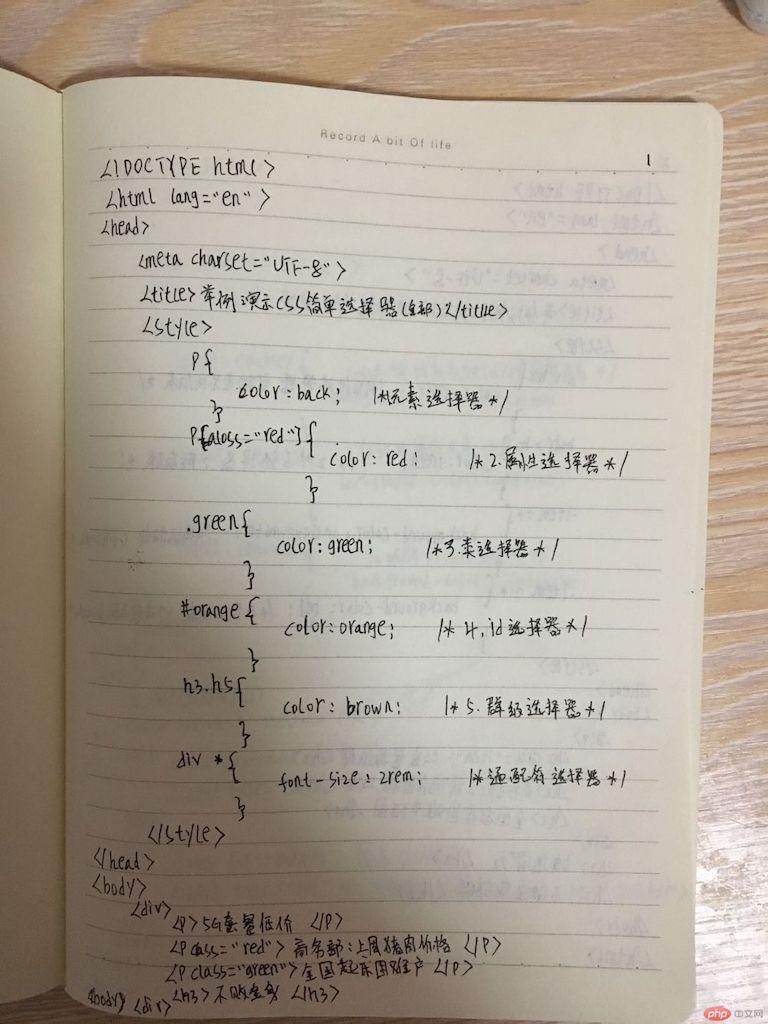 Record A Bit Of life
1
<!DOCTYPE html>
<html lang="en">
<head>
<meta charset="UTF-8">
<title>举例演示CSS简单选择器(全部)</title>
<style>
p{
color:back; /*1元素选择器*/
}
p[aloss="red"]{
color:red; /*2.属性选择器*/
}
.green{
color:green; /*3.类选择器*/
}
#orange{
color:orange; /*4.id选择器*/
}
h3.h5{
color:brown; /*5.群组选择器*/
}
div *{
font-size:2rem; /*通配符选择器*/
}
</style>
</head>
<body>
<div>
<p>5G套餐低价</p>
<p cass="red">商务部:上周猪肉价格</p>
<p class="green">全国 </p>
<body> <div> <h3>不败金身</h3>
php 中文网